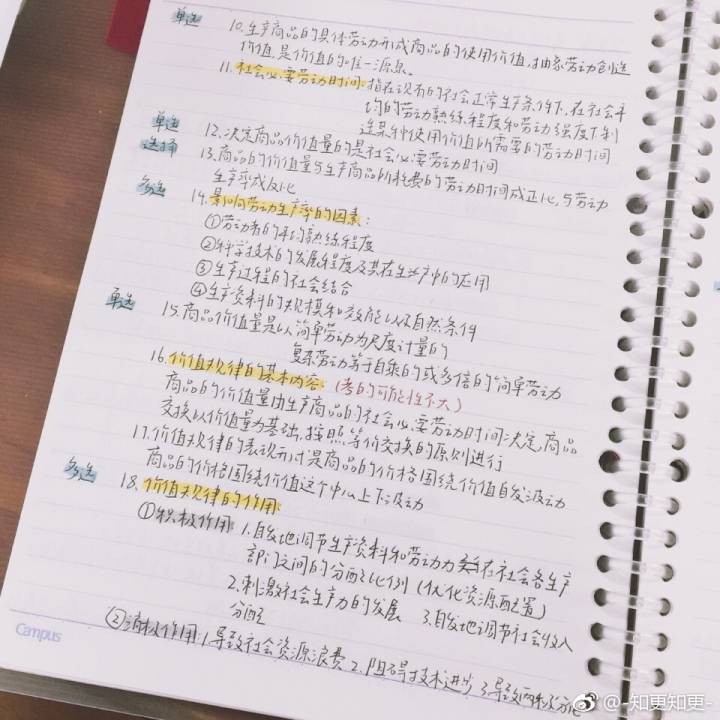 单选 10.生产商品的具体劳动形成商品的使用价值,抽象劳动创造
价值,是价值的唯一源泉。
11.社会必要劳动时间:指在现有的社会正常生产条件下,在社会平
均的劳动熟练程度和劳动强度下制
造某种使用价值的需要的劳动时间
单选 12.决定商品价值量的是社会必要劳动时间
选择 13.商品的价值量与生产商品所耗费的劳动时间成正比,与劳动
生产率成反比
多选 14.影响劳动生产率的因素:
①劳动者的平均熟练程度
②科学技术的发展程度及其在生产中的应用
③生产过程的社会结合
④生产资料的规模和效能以及自然条件
单选 15.商品价值量是以简单劳动为尺度计量的
复杂劳动等于自乘的或多倍的简单劳动
16.价值规律的基本内容:(考的可能性不大)
商品的价值量由生产商品的社会必要劳动时间决定,商品
交换以价值量为基础,按照等价交换的原则进行
17.价值规律的表现形式是商品的价格围绕价值自发波动
商品的价格围绕价值这个中心上下波动
多选 18.价值规律的作用:
①积极作用:1.自发地调节生产资料和劳动力在社会各生产
部门之间的分配比例(优化资源配置)
2.刺激社会生产力的发展 3.自发地调节社会收入
分配
②消极作用:1.导致社会资源浪费 2.阻碍技术进步 3.导致两极分化
Campus
@-知更知更-